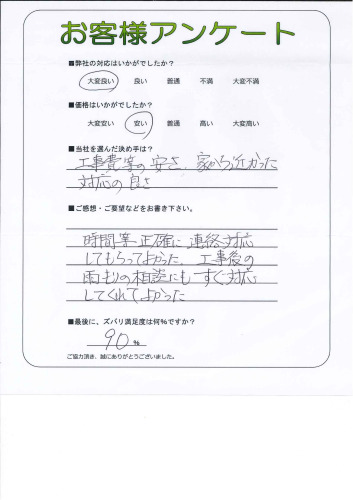 お客様アンケート
■弊社の対応はいかがでしたか？
大変良い 良い 普通 不満 大変不満
■価格はいかがでしたか？
大変安い 安い 普通 高い 大変高い
■当社を選んだ決め手は？
工事費等の安さ、家から近かった
対応の良さ
■ご感想・ご要望などをお書き下さい。
時間等正確に連絡対応
してもらってよかった、工事後の
雨もりの相談にもすぐ対応
してくれてよかった
■最後に、ズバリ満足度は何%ですか？
90 %
ご協力頂き、誠にありがとうございました。